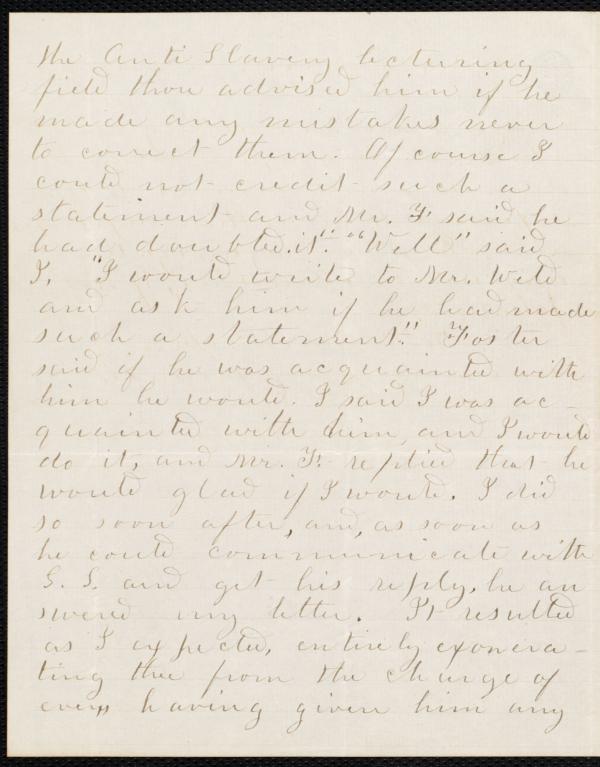 the Anti Slavery lecturing
field thou advised him if he
made any mistakes never
to correct them. Of course I
could not credit such a
statement and Mr. F said he
had doubted it." "Well" said
I, "I would write to Mr. Weld
and ask him if he had made
such a statement." Foster
said if he was acquainted with
him he would. I said I was ac-
quainted with him, and I would
do it, and Mr. F. replied that he
would glad if I would. I did
so soon after, and, as soon as
he could communicate with
S. S. and get his reply, he an
swered my letter. It resulted
as I expected, entirely exonera-
ting thee from the charge of
ever having given him any